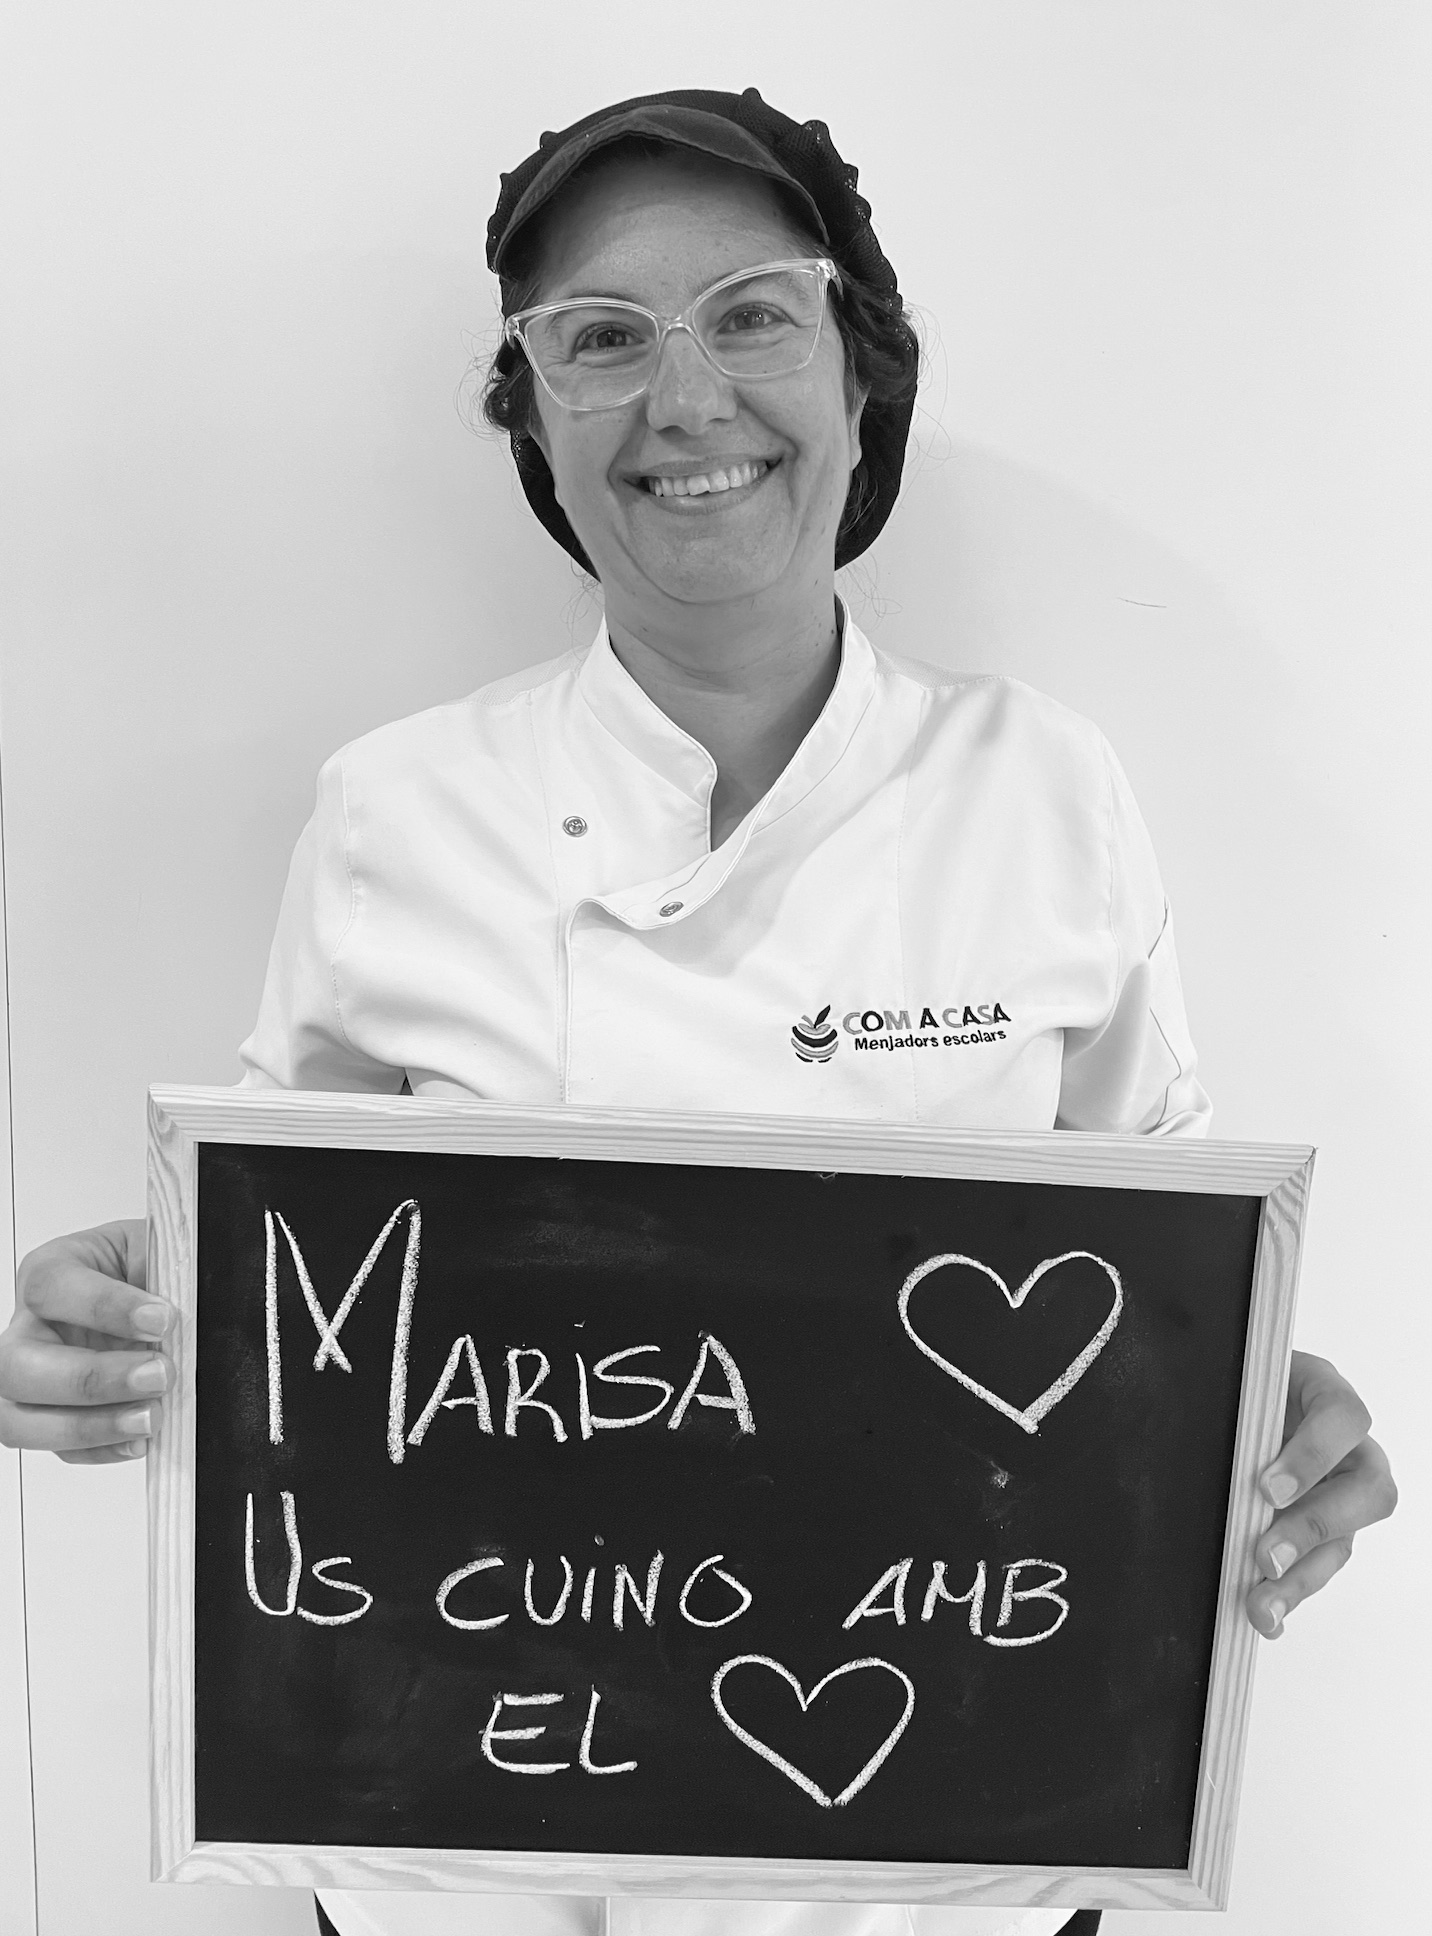 COM A CASA
Menjadors escolars
MARISA
US CUINO AMB
EL